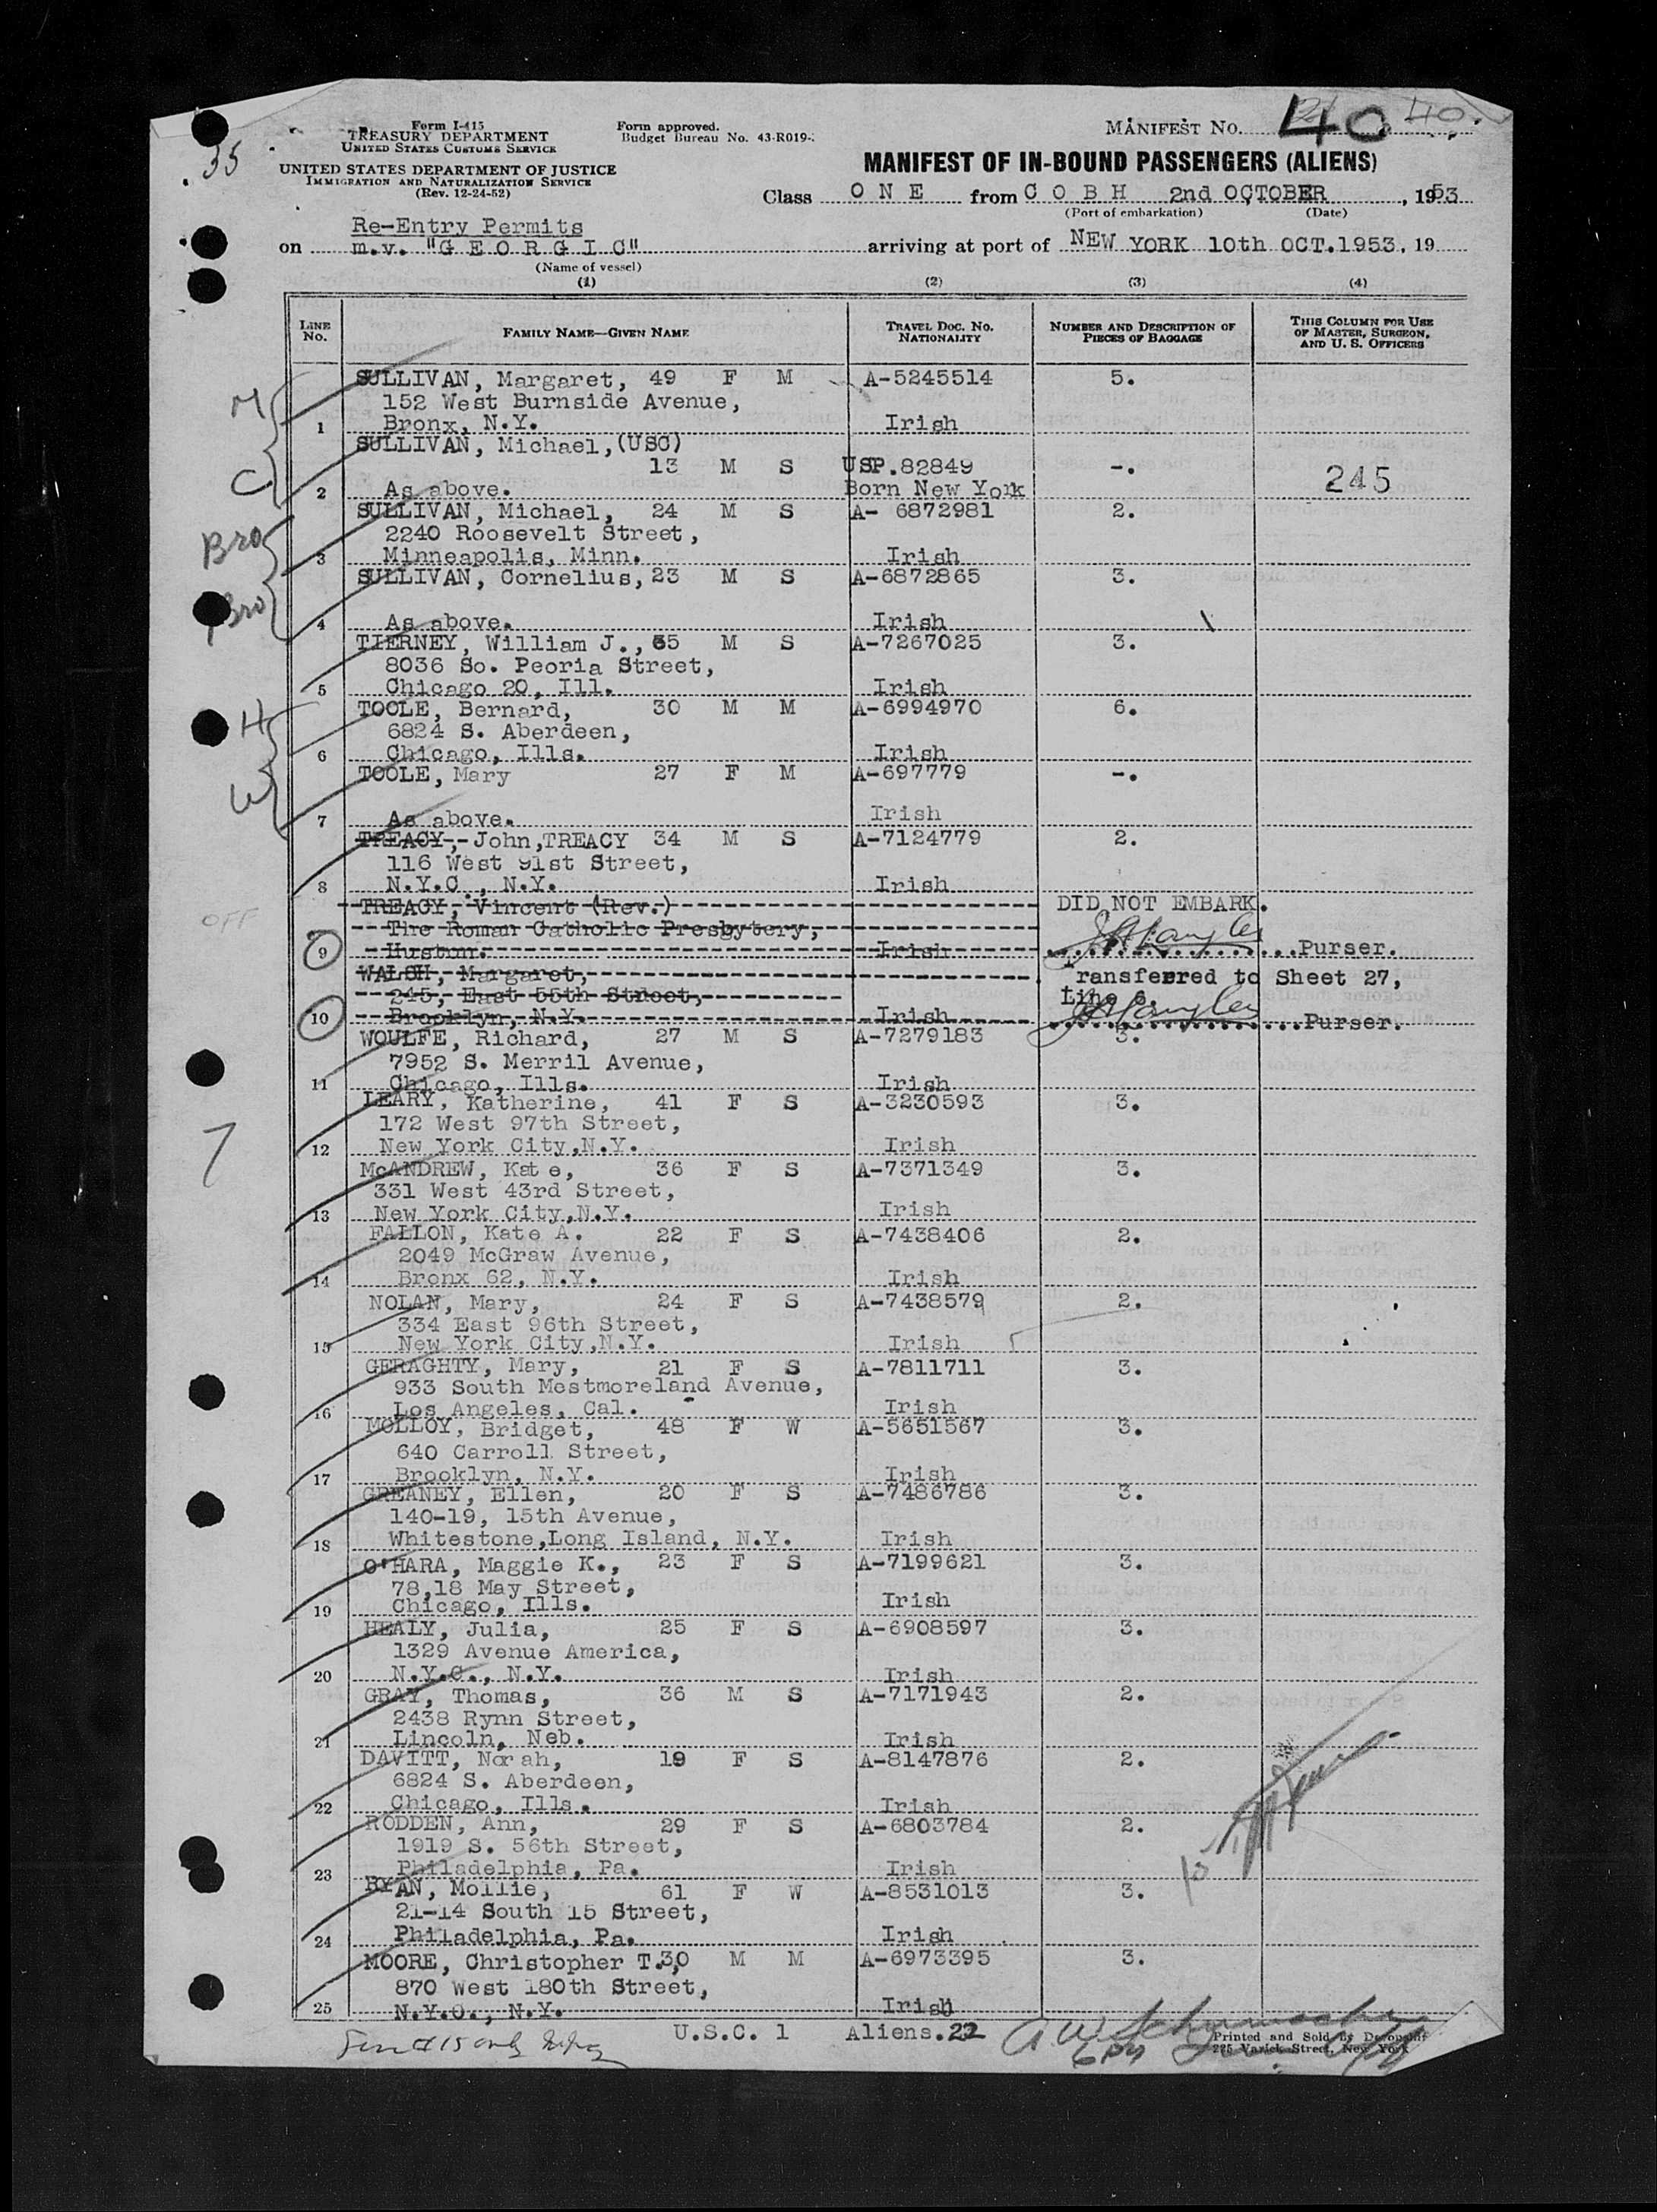 Form I-415
TREASURY DEPARTMENT
UNITED STATES CUSTOMS SERVICE
Form approved.
Budget Bureau No. 43-R019-
MANIFEST No. 40 40
35
UNITED STATES DEPARTMENT OF JUSTICE
IMMIGRATION AND NATURALIZATION SERVICE
(Rev. 12-24-52)
MANIFEST OF IN-BOUND PASSENGERS (ALIENS)
Class ONE from COBH 2nd OCTOBER, 1953
(Port of embarkation) (Date)
Re-Entry Permits
on m.v. "GEORGIC" arriving at port of NEW YORK 10th OCT.1953, 19
(Name of vessel)
(1) (2) (3) (4)
LINE No. FAMILY NAME—GIVEN NAME TRAVEL DOC. No. NATIONALITY NUMBER AND DESCRIPTION OF PIECES OF BAGGAGE THIS COLUMN FOR USE OF MASTER, SURGEON, AND U. S. OFFICERS
SULLIVAN, Margaret, 49 F M A-5245514 5.
M 152 West Burnside Avenue,
1 Bronx, N.Y. Irish
SULLIVAN, Michael,(USC)
13 M S USP.82849 -.
C 2 As above. Born New York 245
SULLIVAN, Michael, 24 M S A- 6872981 2.
Bro 2240 Roosevelt Street,
3 Minneapolis, Minn. Irish
SULLIVAN, Cornelius, 23 M S A-6872865 3.
Bro
4 As above. Irish
TIERNEY, William J., 65 M S A-7267025 3.
8036 So. Peoria Street,
5 Chicago 20, Ill. Irish
TOOLE, Bernard, 30 M M A-6994970 6.
H 6824 S. Aberdeen,
6 Chicago, Ills. Irish
TOOLE, Mary 27 F M A-697779 -.
W
7 As above. Irish
TREACY,-John,TREACY 34 M S A-7124779 2.
116 West 91st Street,
8 N.Y.C., N.Y. Irish
TREACY, Vincent (Rev.) DID NOT EMBARK.
OFF The Roman Catholic Presbytery,
9 Huston. Irish Purser.
WALSH, Margaret, ransferred to Sheet 27,
245, East 55th Street, Line 6.
10 Brooklyn, N.Y. Irish Purser.
WOULFE, Richard, 27 M S A-7279183 3.
7952 S. Merril Avenue,
11 Chicago, Ills. Irish
LEARY, Katherine, 41 F S A-3230593 3.
172 West 97th Street,
7
12 New York City,N.Y. Irish
McANDREW, Kate, 36 F S A-7371349 3.
331 West 43rd Street,
13 New York City,N.Y. Irish
FALLON, Kate A. 22 F S A-7438406 2.
2049 McGraw Avenue,
14 Bronx 62, N.Y. Irish
NOLAN, Mary, 24 F S A-7438579 2.
334 East 96th Street,
15 New York City,N.Y. Irish
GERAGHTY, Mary, 21 F S A-7811711 3.
933 South Mostmoreland Avenue,
16 Los Angeles, Cal. Irish
MOLLOY, Bridget, 48 F W A-5651567 3.
640 Carroll Street,
17 Brooklyn, N.Y. Irish
GREANEY, Ellen, 20 F S A-7486786 3.
140-19, 15th Avenue,
18 Whitestone,Long Island, N.Y. Irish
O'HARA, Maggie K., 23 F S A-7199621 3.
78,18 May Street,
19 Chicago, Ills. Irish
HEALY, Julia, 25 F S A-6908597 3.
1329 Avenue America,
20 N.Y.C., N.Y. Irish
GRAY, Thomas, 36 M S A-7171943 2.
2438 Rynn Street,
21 Lincoln, Neb. Irish
DAVITT, Norah, 19 F S A-8147876 2.
6824 S. Aberdeen,
22 Chicago, Ills. Irish
RODDEN, Ann, 29 F S A-6803784 2.
1919 S. 56th Street,
23 Philadelphia, Pa. Irish
RYAN, Mollie, 61 F W A-8531013 3.
21-14 South 15 Street,
24 Philadelphia, Pa. Irish
MOORE, Christopher T., 30 M M A-6973395 3.
870 West 180th Street,
25 N.Y.C., N.Y. Irish
U.S.C. 1 Aliens.22
Printed and Sold by
225 Varick Street, New York